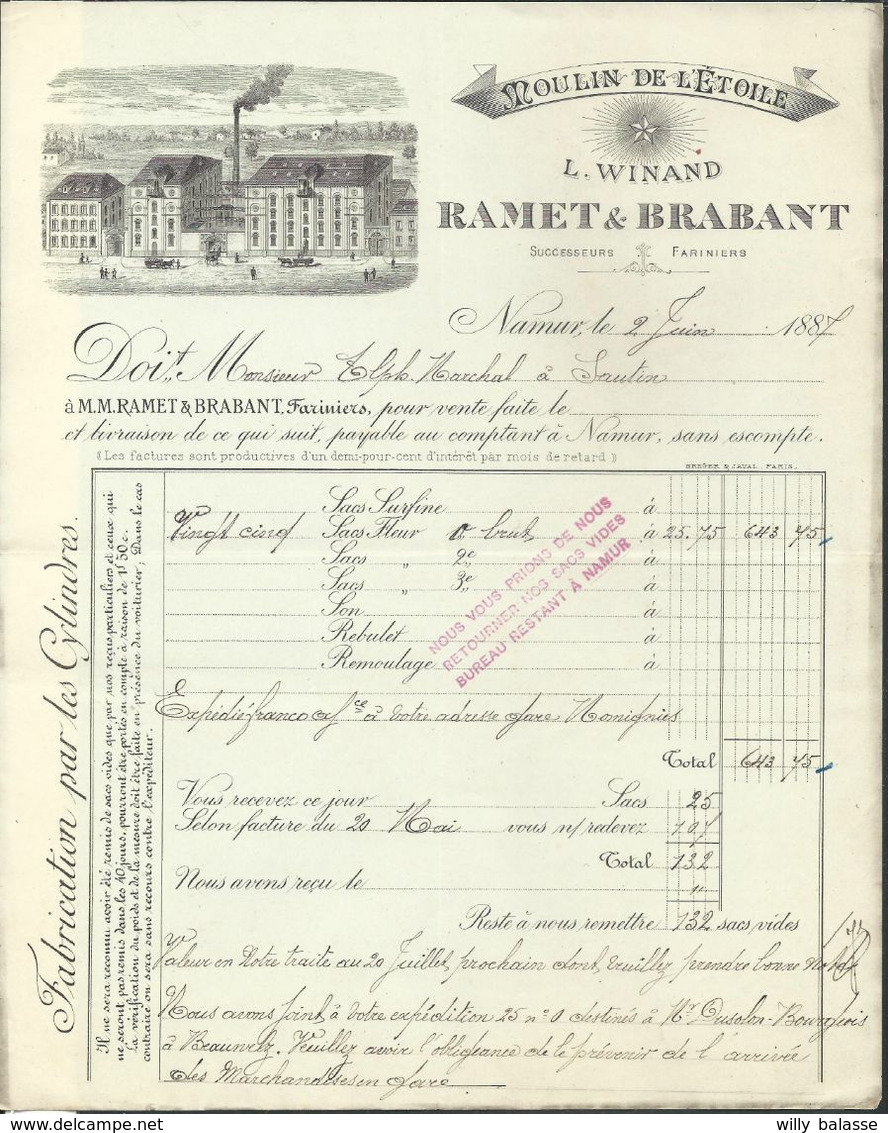 MOULIN DE L'ÉTOILE
L. WINAND
RAMET & BRABANT
SUCCESSEURS FARINIERS
Namur, le 2 Juin 1887
Doit Monsieur Alph. Marchal à Sautin
à M.M. RAMET & BRABANT, Fariniers, pour vente faite le
et livraison de ce qui suit, payable au comptant à Namur, sans escompte.
(Les factures sont productives d'un demi-pour-cent d'intérêt par mois de retard)
BREGER & JAVAL, PARIS.
Fabrication par les Cylindres.
Il ne sera reconnu avoir été remis de sacs vides que par nos reçus particuliers et ceux qui
ne seront pas remis dans les 40 jours, pourront être portés en compte à raison de 1f 50c.
la vérification du poids et de la mesure doit être faite en présence du voiturier; Dans le cas
contraire on sera sans recours contre l'expéditeur.
Sacs Surfine à
Vingt cinq Sacs Fleur 0 brut à 25.75 643 75
Sacs " 2e à
Sacs " 3e à
Son à
Rebulet à
Remoulage à
NOUS VOUS PRIONS DE NOUS
RETOURNER NOS SACS VIDES
BUREAU RESTANT À NAMUR
Expédié franco à votre adresse gare Momignies
Total 643 75
Vous recevez ce jour Sacs 25
Selon facture du 20 Mai vous n/ redevez 107
Total 132
Nous avons reçu le "
Reste à nous remettre 132 sacs vides
Valeur en Notre traite au 20 Juillet prochain dont veuillez prendre bonne note
Nous avons joint à votre expédition 25 n° 0 destinés à Mr Dusolon-Bourgeois
à Beauwelz. Veuillez avoir l'obligeance de le prévenir de l'arrivée
des Marchandises en gare
willy balasse